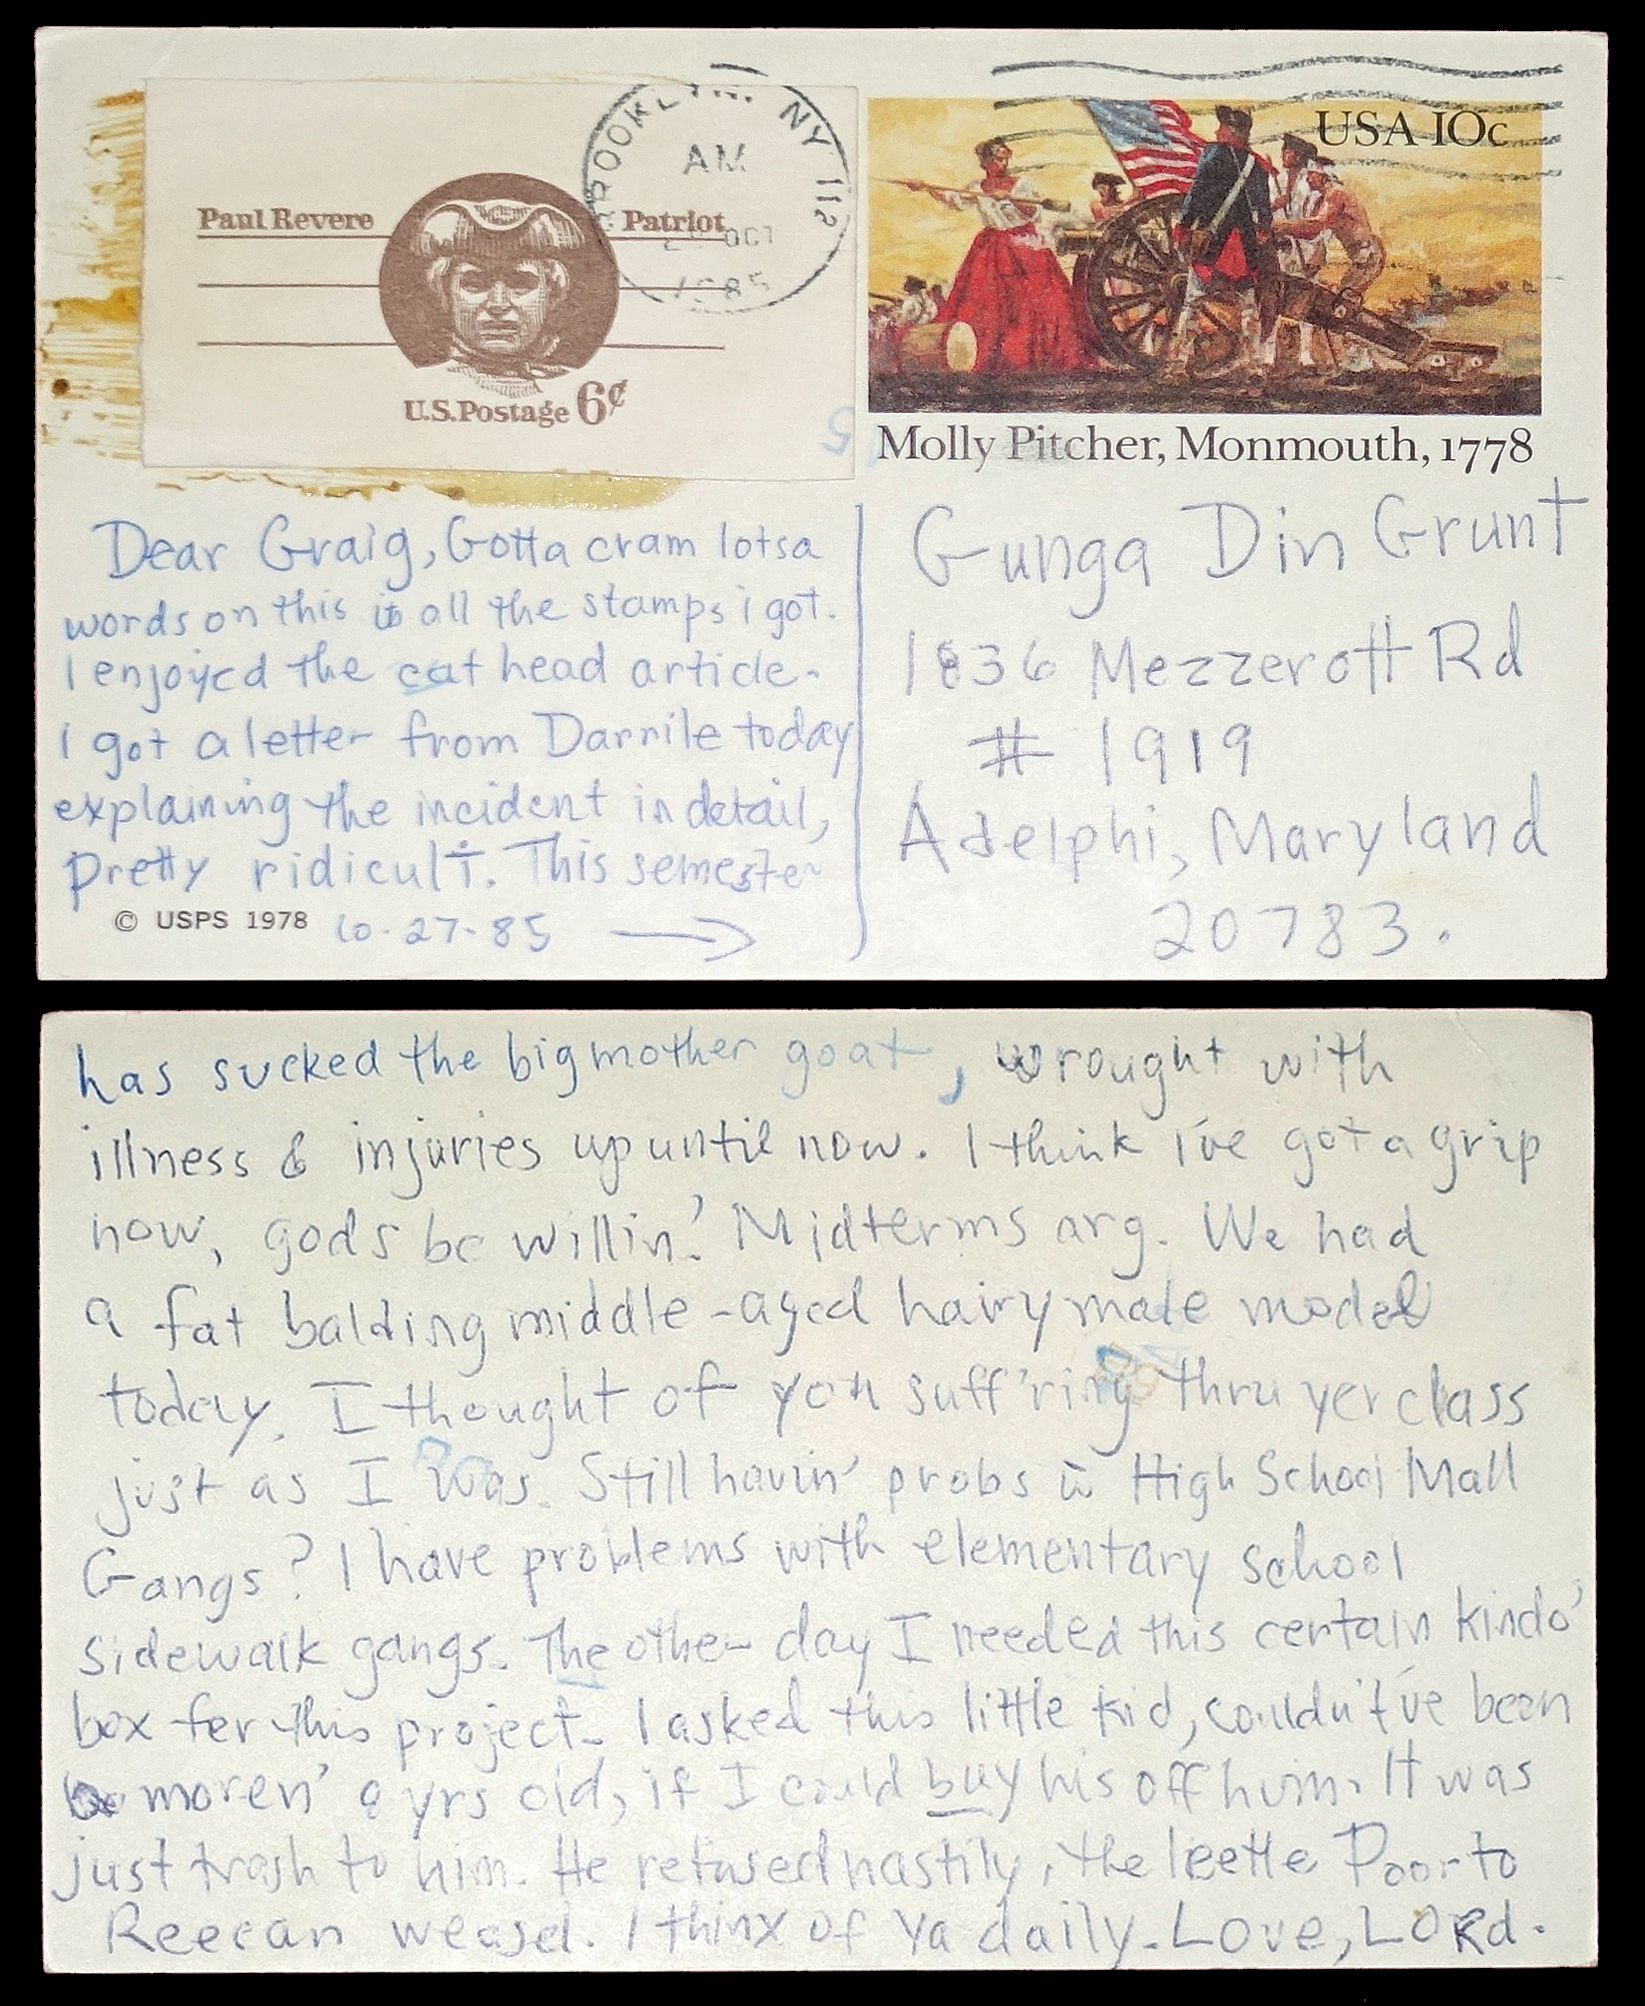 BROOKLYN, NY 112
AM
OCT
1985
Paul Revere Patriot
U.S. Postage 6¢
USA 10c
Molly Pitcher, Monmouth, 1778
Dear Graig, Gotta cram lotsa
words on this is all the stamps i got.
I enjoyed the cat head article.
I got a letter from Darrile today
explaining the incident in detail,
Pretty ridicult. This semester
© USPS 1978 10-27-85 →
Gunga Din Grunt
1836 Mezzerott Rd
# 1919
Adelphi, Maryland
20783.
has sucked the big mother goat, wrought with
illness & injuries up until now. I think i've got a grip
now, gods be willin'. Midterms arg. We had
a fat balding middle-aged hairy male model
today. I thought of you suff'ring thru yer class
just as I was. Still havin' probs w High School Mall
Gangs? I have problems with elementary school
sidewalk gangs. The other day I needed this certain kindo'
box fer this project. I asked this little kid, couldn't've been
moren' 9 yrs old, if I could buy his off him. It was
just trash to him. He refused nastily, the leetle Poorto
Reecan weasel. I thinx of ya daily. Love, LORd.